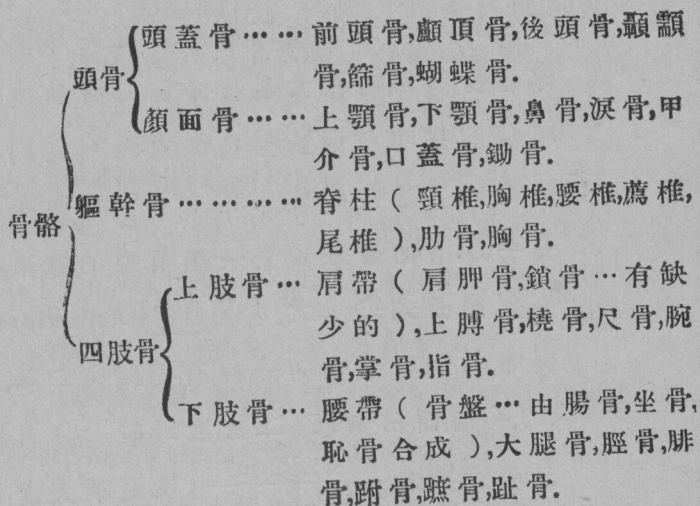 骨骼
頭骨
頭蓋骨……前頭骨,顱頂骨,後頭骨,顳顬
骨,篩骨,蝴蝶骨.
顏面骨……上顎骨,下顎骨,鼻骨,淚骨,甲
介骨,口蓋骨,鋤骨.
軀幹骨…………脊柱(頸椎,胸椎,腰椎,薦椎,
尾椎),肋骨,胸骨.
四肢骨
上肢骨…肩帶(肩胛骨,鎖骨…有缺
少的),上膊骨,橈骨,尺骨,腕
骨,掌骨,指骨.
下肢骨…腰帶(骨盤…由腸骨,坐骨,
恥骨合成),大腿骨,脛骨,腓
骨,跗骨,蹠骨,趾骨.